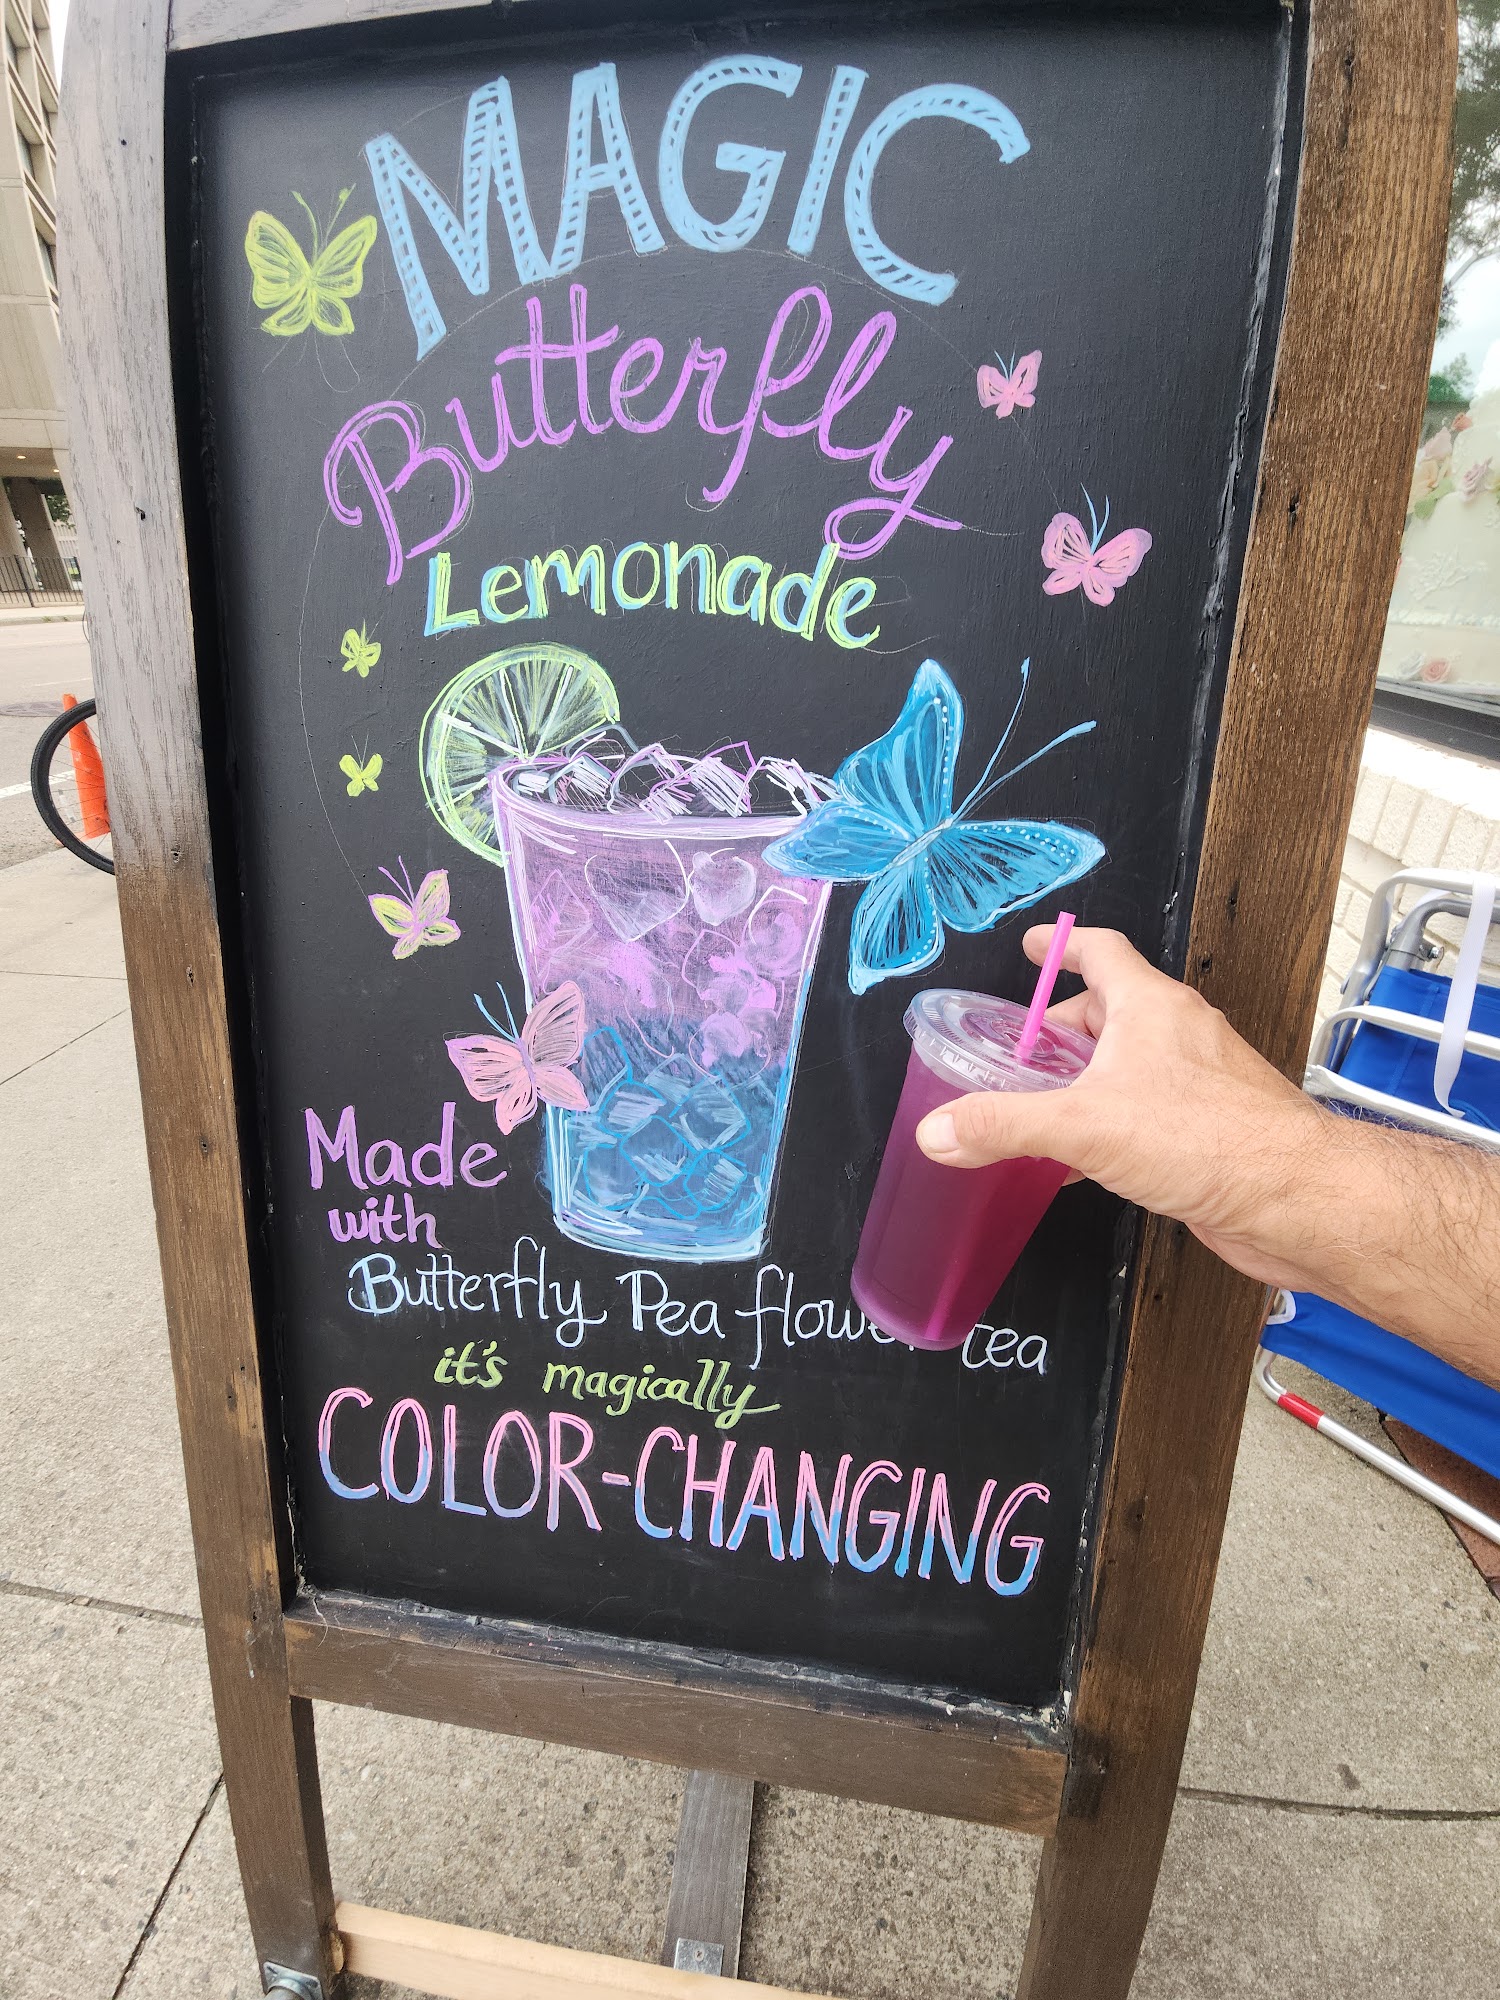 MAGIC
Butterfly
Lemonade
Made
with
Butterfly Pea flower tea
it's magically
COLOR-CHANGING